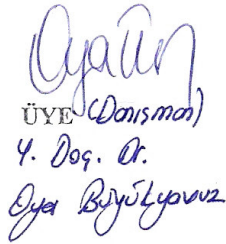 ÜYE (Danışman)
Y. Doç. Dr.
Oya Büyükyavuz